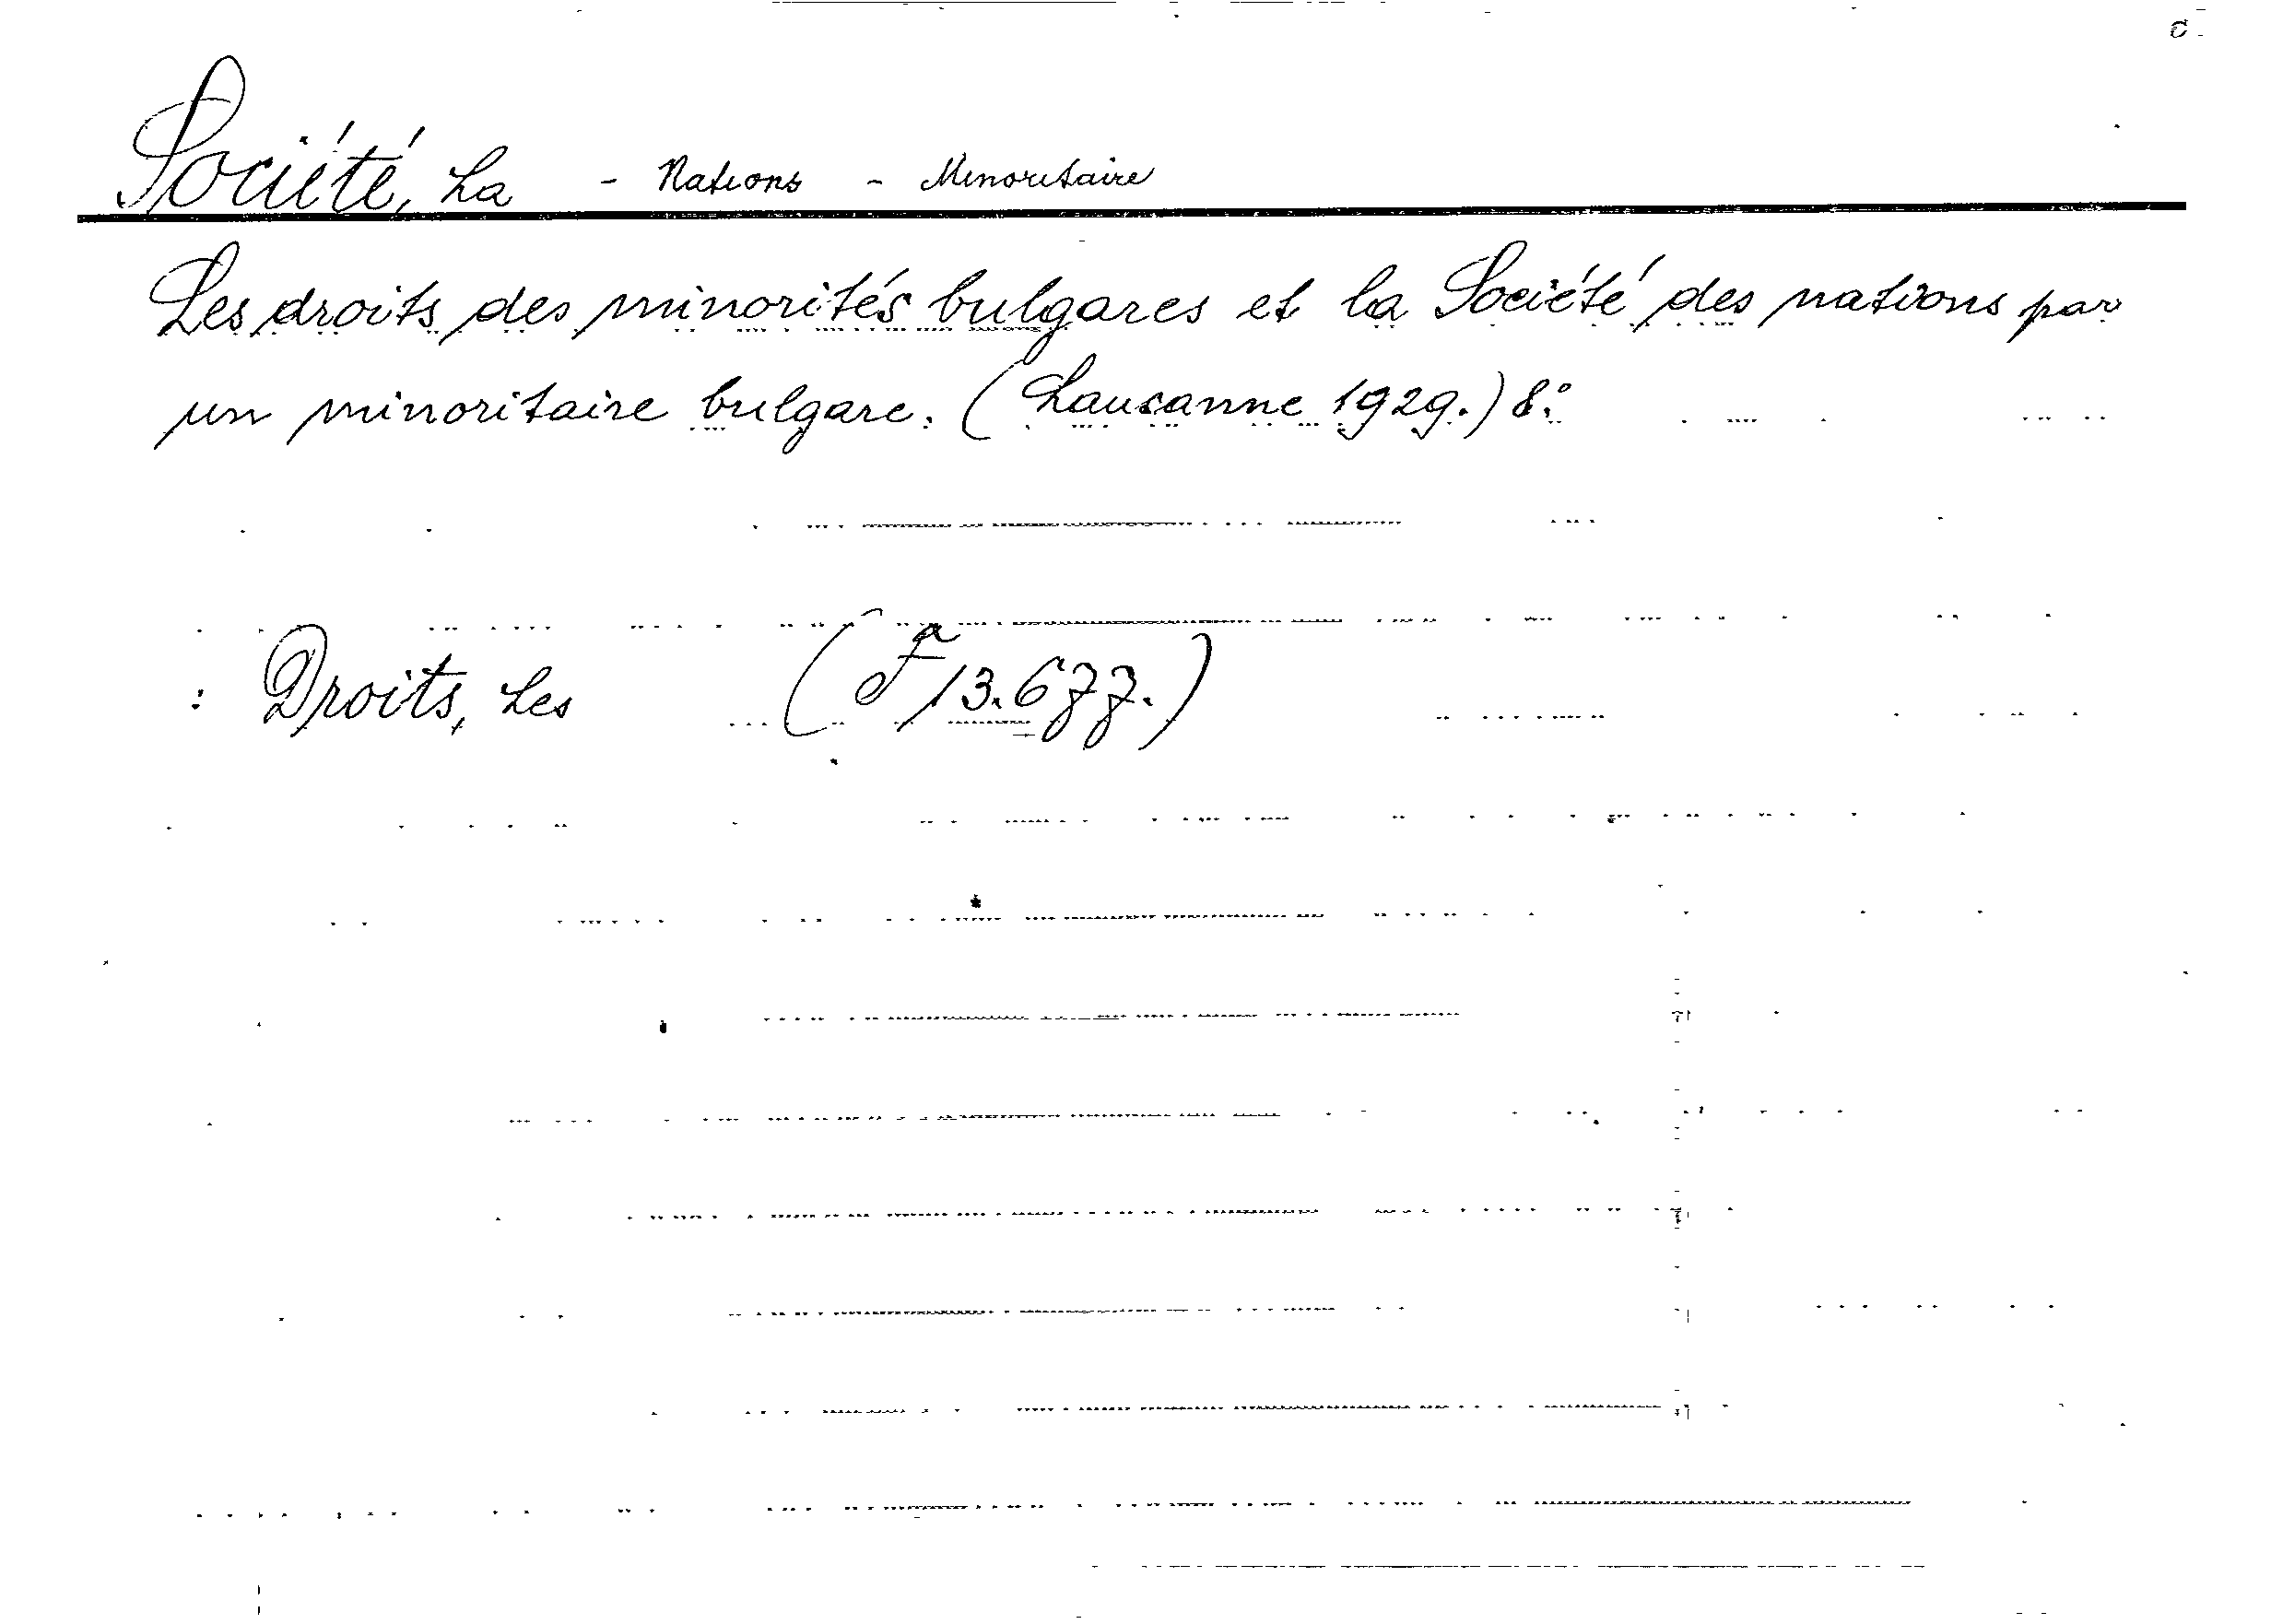 Société, La - Nations - Minoritaire
Les droits des minorités bulgares et la Société des nations par
un minoritaire bulgare. (Lausanne 1929.) 8.°
: Droits, Les (Fª 13.677.)